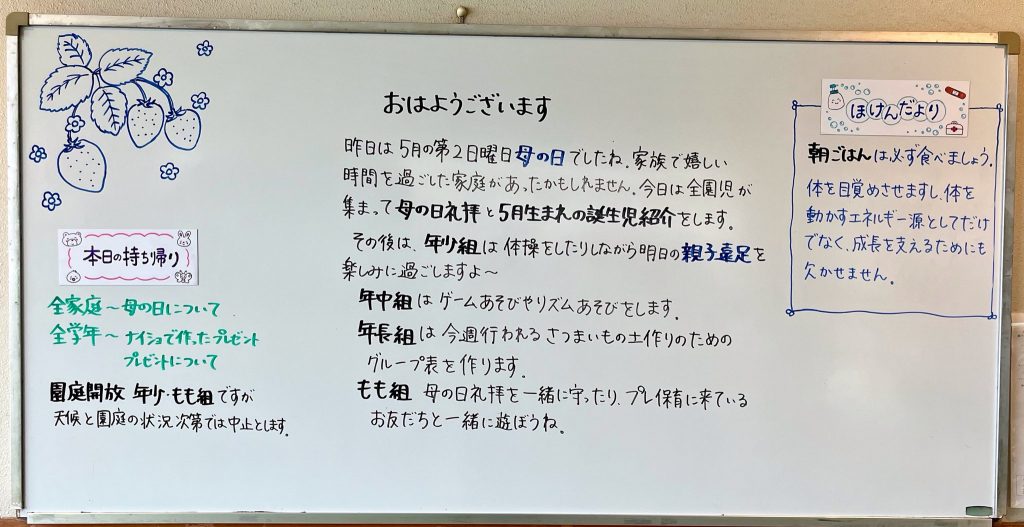 おはようございます
昨日は5月の第2日曜日母の日でしたね。家族で嬉しい
時間を過ごした家庭があったかもしれません。今日は全園児が
集まって母の日礼拝と5月生まれの誕生児紹介をします。
その後は、年少組は体操をしたりしながら明日の親子遠足を
楽しみに過ごしますよ～
年中組はゲームあそびやリズムあそびをします。
年長組は今週行われるさつまいもの土作りのための
グループ表を作ります。
もも組 母の日礼拝を一緒に守ったり、プレ保育に来ている
お友だちと一緒に遊ぼうね。
本日の持ち帰り
全家庭～母の日について
全学年～ナイショで作ったプレゼント
プレゼントについて
園庭開放 年少・もも組ですが
天候と園庭の状況次第では中止とします。
ほけんだより
朝ごはんは必ず食べましょう。
体を目覚めさせますし、体を
動かすエネルギー源としてだけ
でなく、成長を支えるためにも
欠かせません。